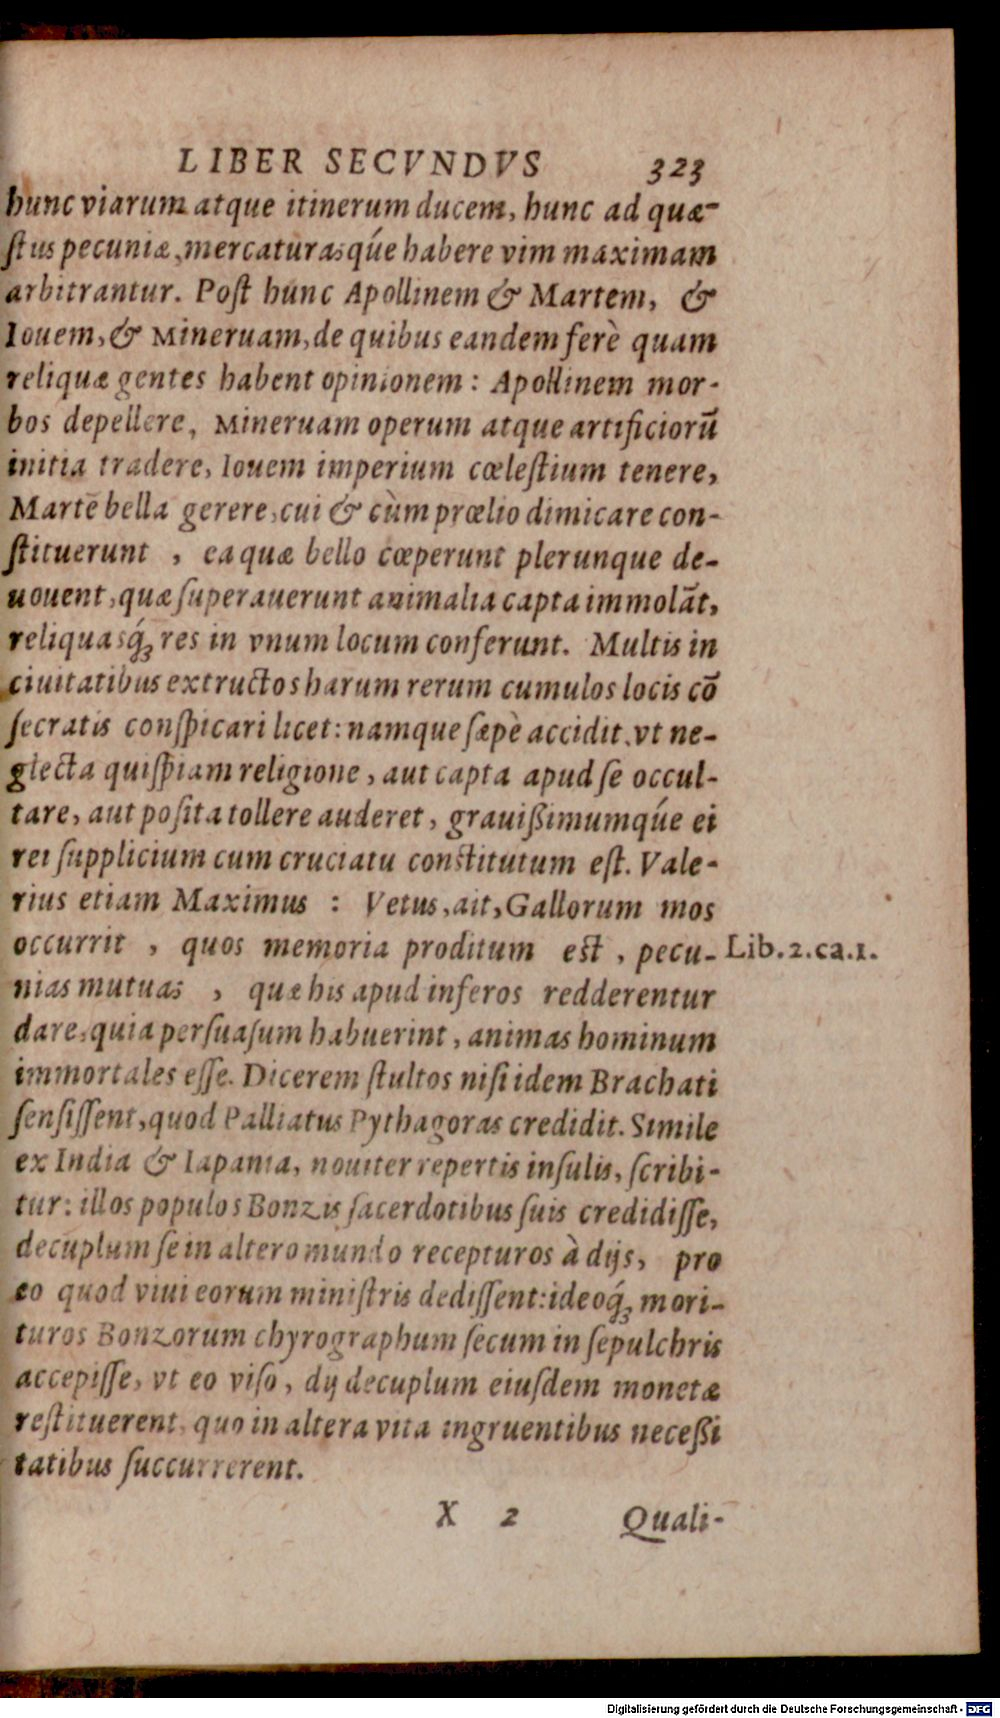 LIBER SECVNDVS 323
hunc viarum atque itinerum ducem, hunc ad quæ-
ſtus pecuniæ, mercaturasq́ue habere vim maximam
arbitrantur. Poſt hunc Apollinem & Martem, &
Iouem, & Mineruam, de quibus eandem ferè quam
reliquæ gentes habent opinionem: Apollinem mor-
bos depellere, Mineruam operum atque artificiorū
initia tradere, Iouem imperium cœleſtium tenere,
Martē bella gerere, cui & cùm prœlio dimicare con-
ſtituerunt, ea quæ bello cœperunt plerunque de-
uouent, quæ ſuperauerunt animalia capta immolāt,
reliquasq́ꝫ res in vnum locum conferunt. Multis in
ciuitatibus extructos harum rerum cumulos locis cō
ſecratis conſpicari licet: namque ſæpè accidit, vt ne-
glecta quiſpiam religione, aut capta apud ſe occul-
tare, aut poſita tollere auderet, grauißimumq́ue ei
rei ſupplicium cum cruciatu conſtitutum eſt. Vale-
rius etiam Maximus : Vetus, ait, Gallorum mos
occurrit, quos memoria proditum eſt, pecu-
Lib. 2. ca. 1.
nias mutuas, quæ his apud inferos redderentur
dare, quia perſuaſum habuerint, animas hominum
immortales eſſe. Dicerem ſtultos niſi idem Brachati
ſenſiſſent, quod Palliatus Pythagoras credidit. Simile
ex India & Iapania, nouiter repertis inſulis, ſcribi-
tur: illos populos Bonzis ſacerdotibus ſuis credidiſſe,
decuplum ſe in altero mundo recepturos à dijs, pro
eo quod viui eorum miniſtris dediſſent: ideoq́ꝫ mori-
turos Bonzorum chyrographum ſecum in ſepulchris
accepiſſe, vt eo viſo, dij decuplum eiuſdem monetæ
reſtituerent, quo in altera vita ingruentibus neceßi
tatibus ſuccurrerent.
X 2 Quali-
Digitalisierung gefördert durch die Deutsche Forschungsgemeinschaft - DFG